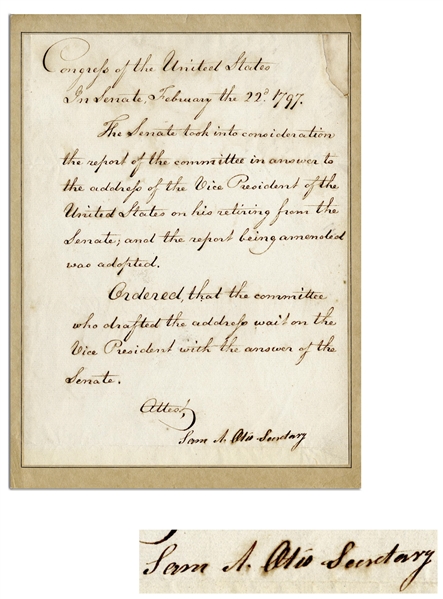 Congress of the United States
In Senate, February the 22d. 1797.
The Senate took into consideration
the report of the committee in answer to
the address of the Vice President of the
United States on his retiring from the
Senate; and the report being amended
was adopted.
Ordered, that the committee
who drafted the address wait on the
Vice President with the answer of the
Senate.
Attest,
Sam A. Otis Secretary
Sam A. Otis Secretary